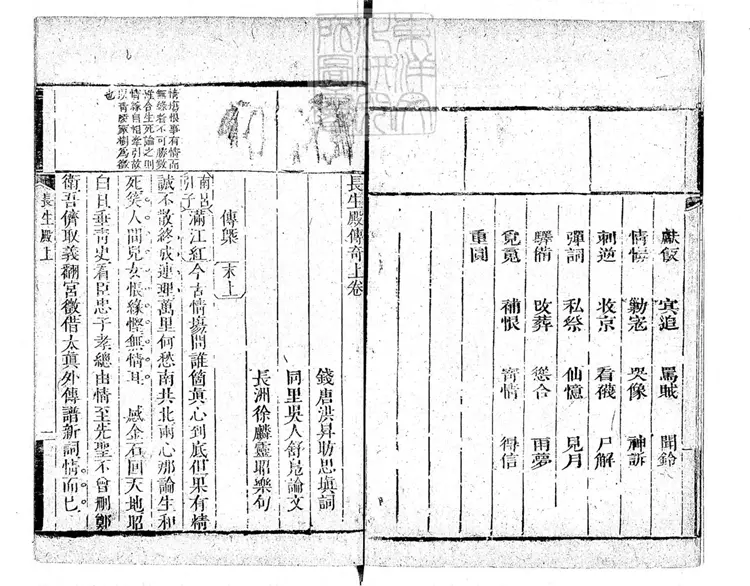 獻飯　冥追　罵賊　聞鈴
情悔　勦寇　哭像　神訴
刺逆　收京　看襪　尸解
彈詞　私祭　仙憶　見月
驛備　改葬　慫合　雨夢
覓魂　補恨　寄情　得信
重圓
長生殿傳奇上卷
錢唐洪昇昉思填詞
同里吳人舒鳧論文
長洲徐麟靈昭樂句
傳槩　末上
南呂引子滿江紅今古情場問誰箇真心到底但果有精
誠不散終成連理萬里何愁南共北兩心那論生和
死笑人間兒女悵緣慳無情耳。感金石回天地昭
白日垂青史看臣忠子孝總由情至先聖不曾刪鄭
衛吾儕取義翻宮徵借太真外傳譜新詞情而已。
長生殿上
一